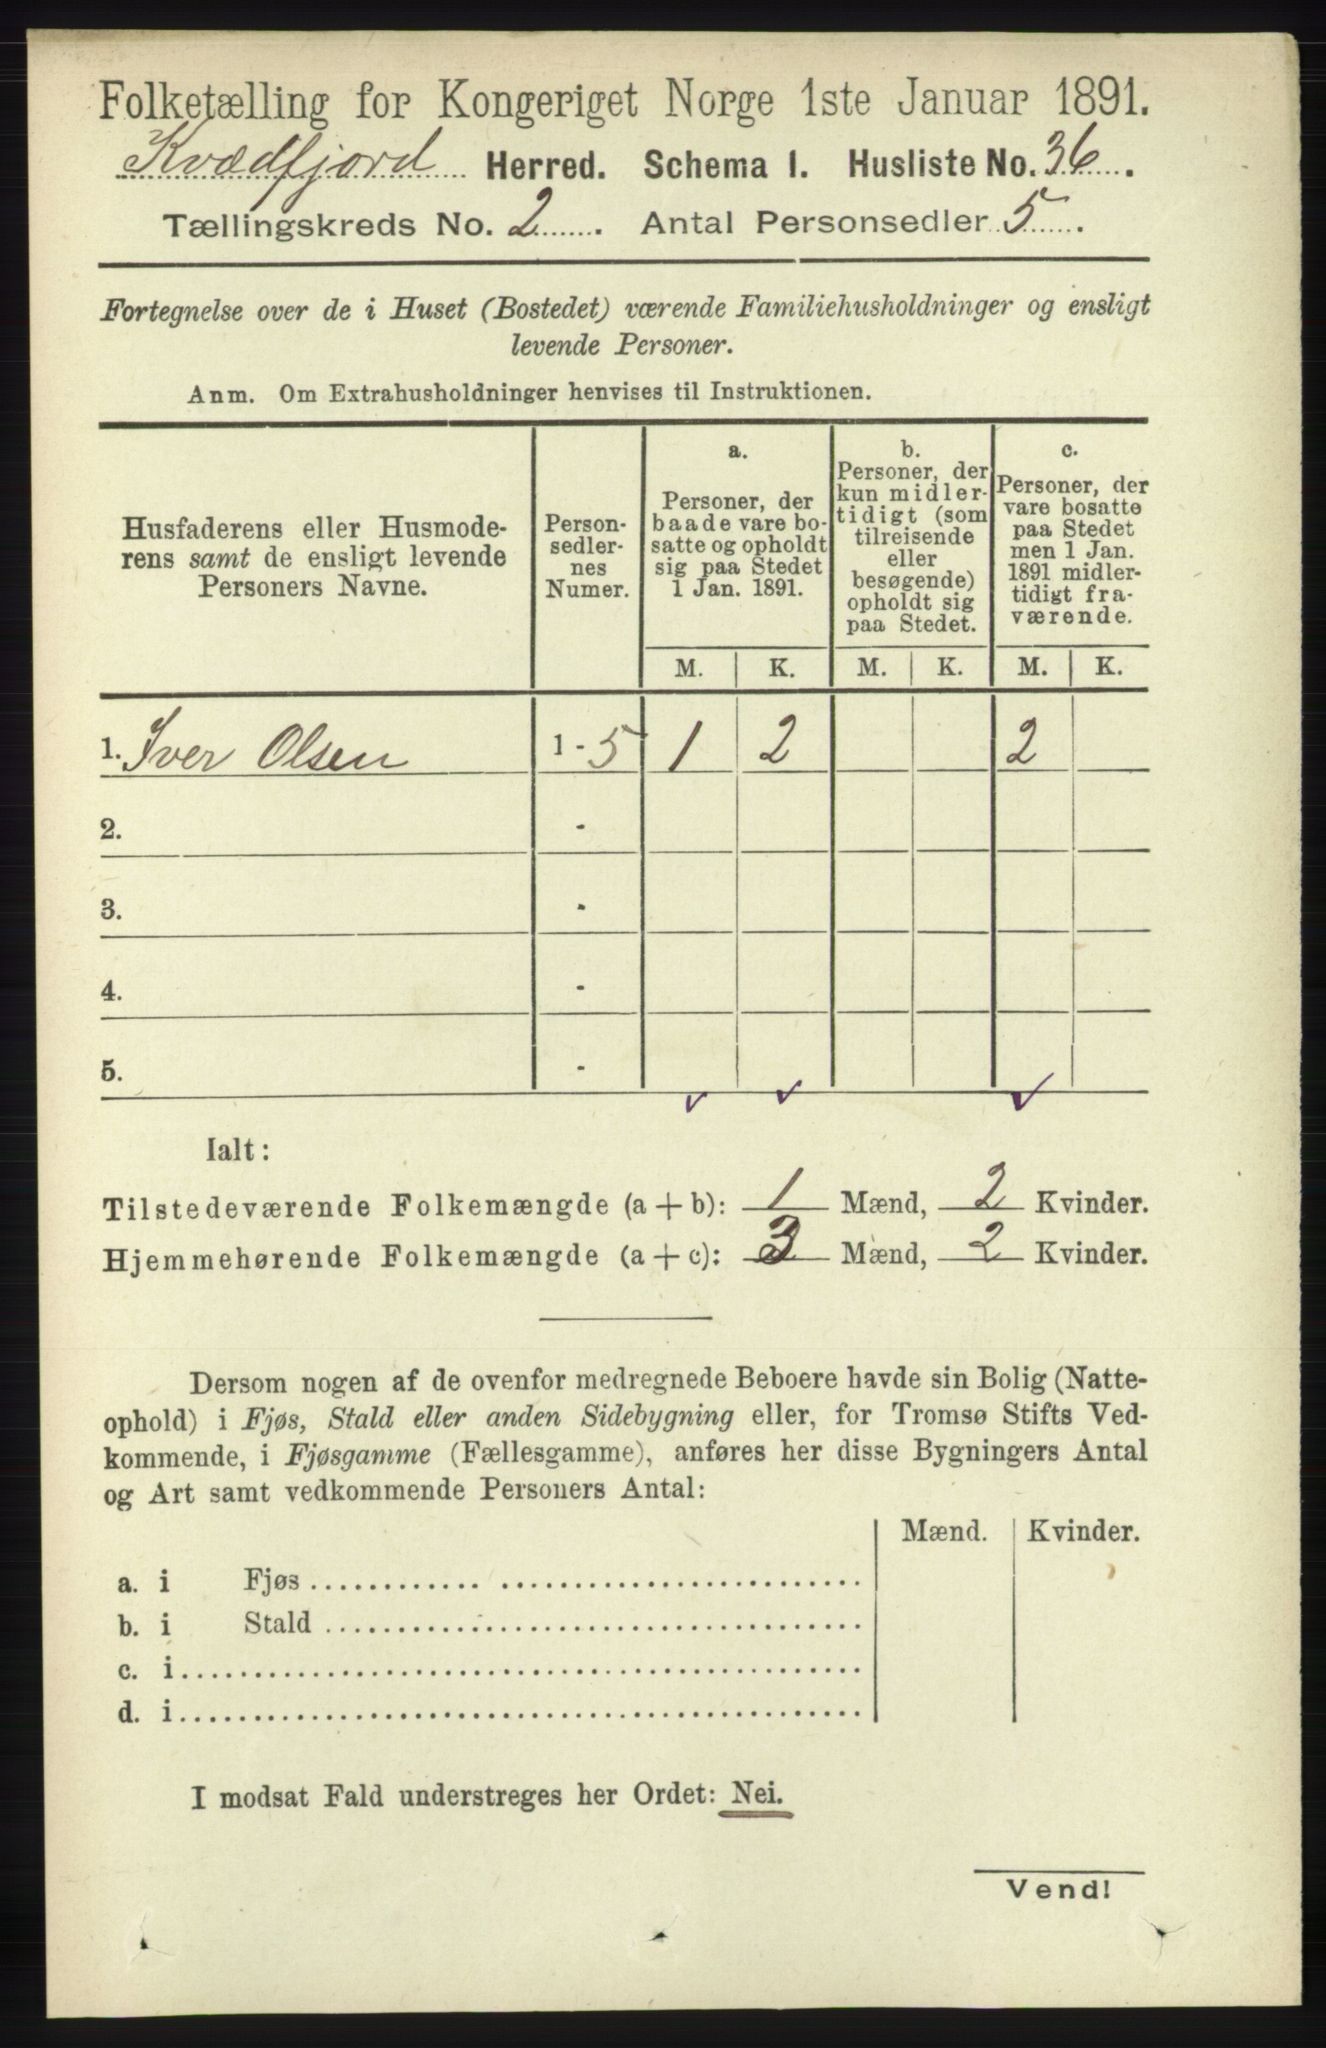 Folketælling for Kongeriget Norge 1ste Januar 1891.
Kvædfjord Herred. Schema 1. Husliste No. 36.
Tællingskreds No. 2. Antal Personsedler 5.
Fortegnelse over de i Huset (Bostedet) værende Familiehusholdninger og ensligt
levende Personer.
Anm. Om Extrahusholdninger henvises til Instruktionen.
Husfaderens eller Husmode-
rens samt de ensligt levende
Personers Navne.
Person-
sedler-
nes
Numer.
a.
Personer, der
baade vare bo-
satte og opholdt
sig paa Stedet
1 Jan. 1891.
b.
Personer, der
kun midler-
tidigt (som
tilreisende
eller
besøgende)
opholdt sig
paa Stedet.
c.
Personer, der
vare bosatte
paa Stedet
men 1 Jan.
1891 midler-
tidigt fra-
værende.
M. K. M. K. M. K.
1. Iver Olsen 1 - 5 1 2 2
2. -
3. -
4. -
5. -
Ialt:
Tilstedeværende Folkemængde (a + b): 1 Mænd, 2 Kvinder.
Hjemmehørende Folkemængde (a + c): 3 Mænd, 2 Kvinder.
Dersom nogen af de ovenfor medregnede Beboere havde sin Bolig (Natte-
ophold) i Fjøs, Stald eller anden Sidebygning eller, for Tromsø Stifts Ved-
kommende, i Fjøsgamme (Fællesgamme), anføres her disse Bygningers Antal
og Art samt vedkommende Personers Antal:
Mænd. Kvinder.
a. i Fjøs
b. i Stald
c. i
d. i
I modsat Fald understreges her Ordet: Nei.
Vend!